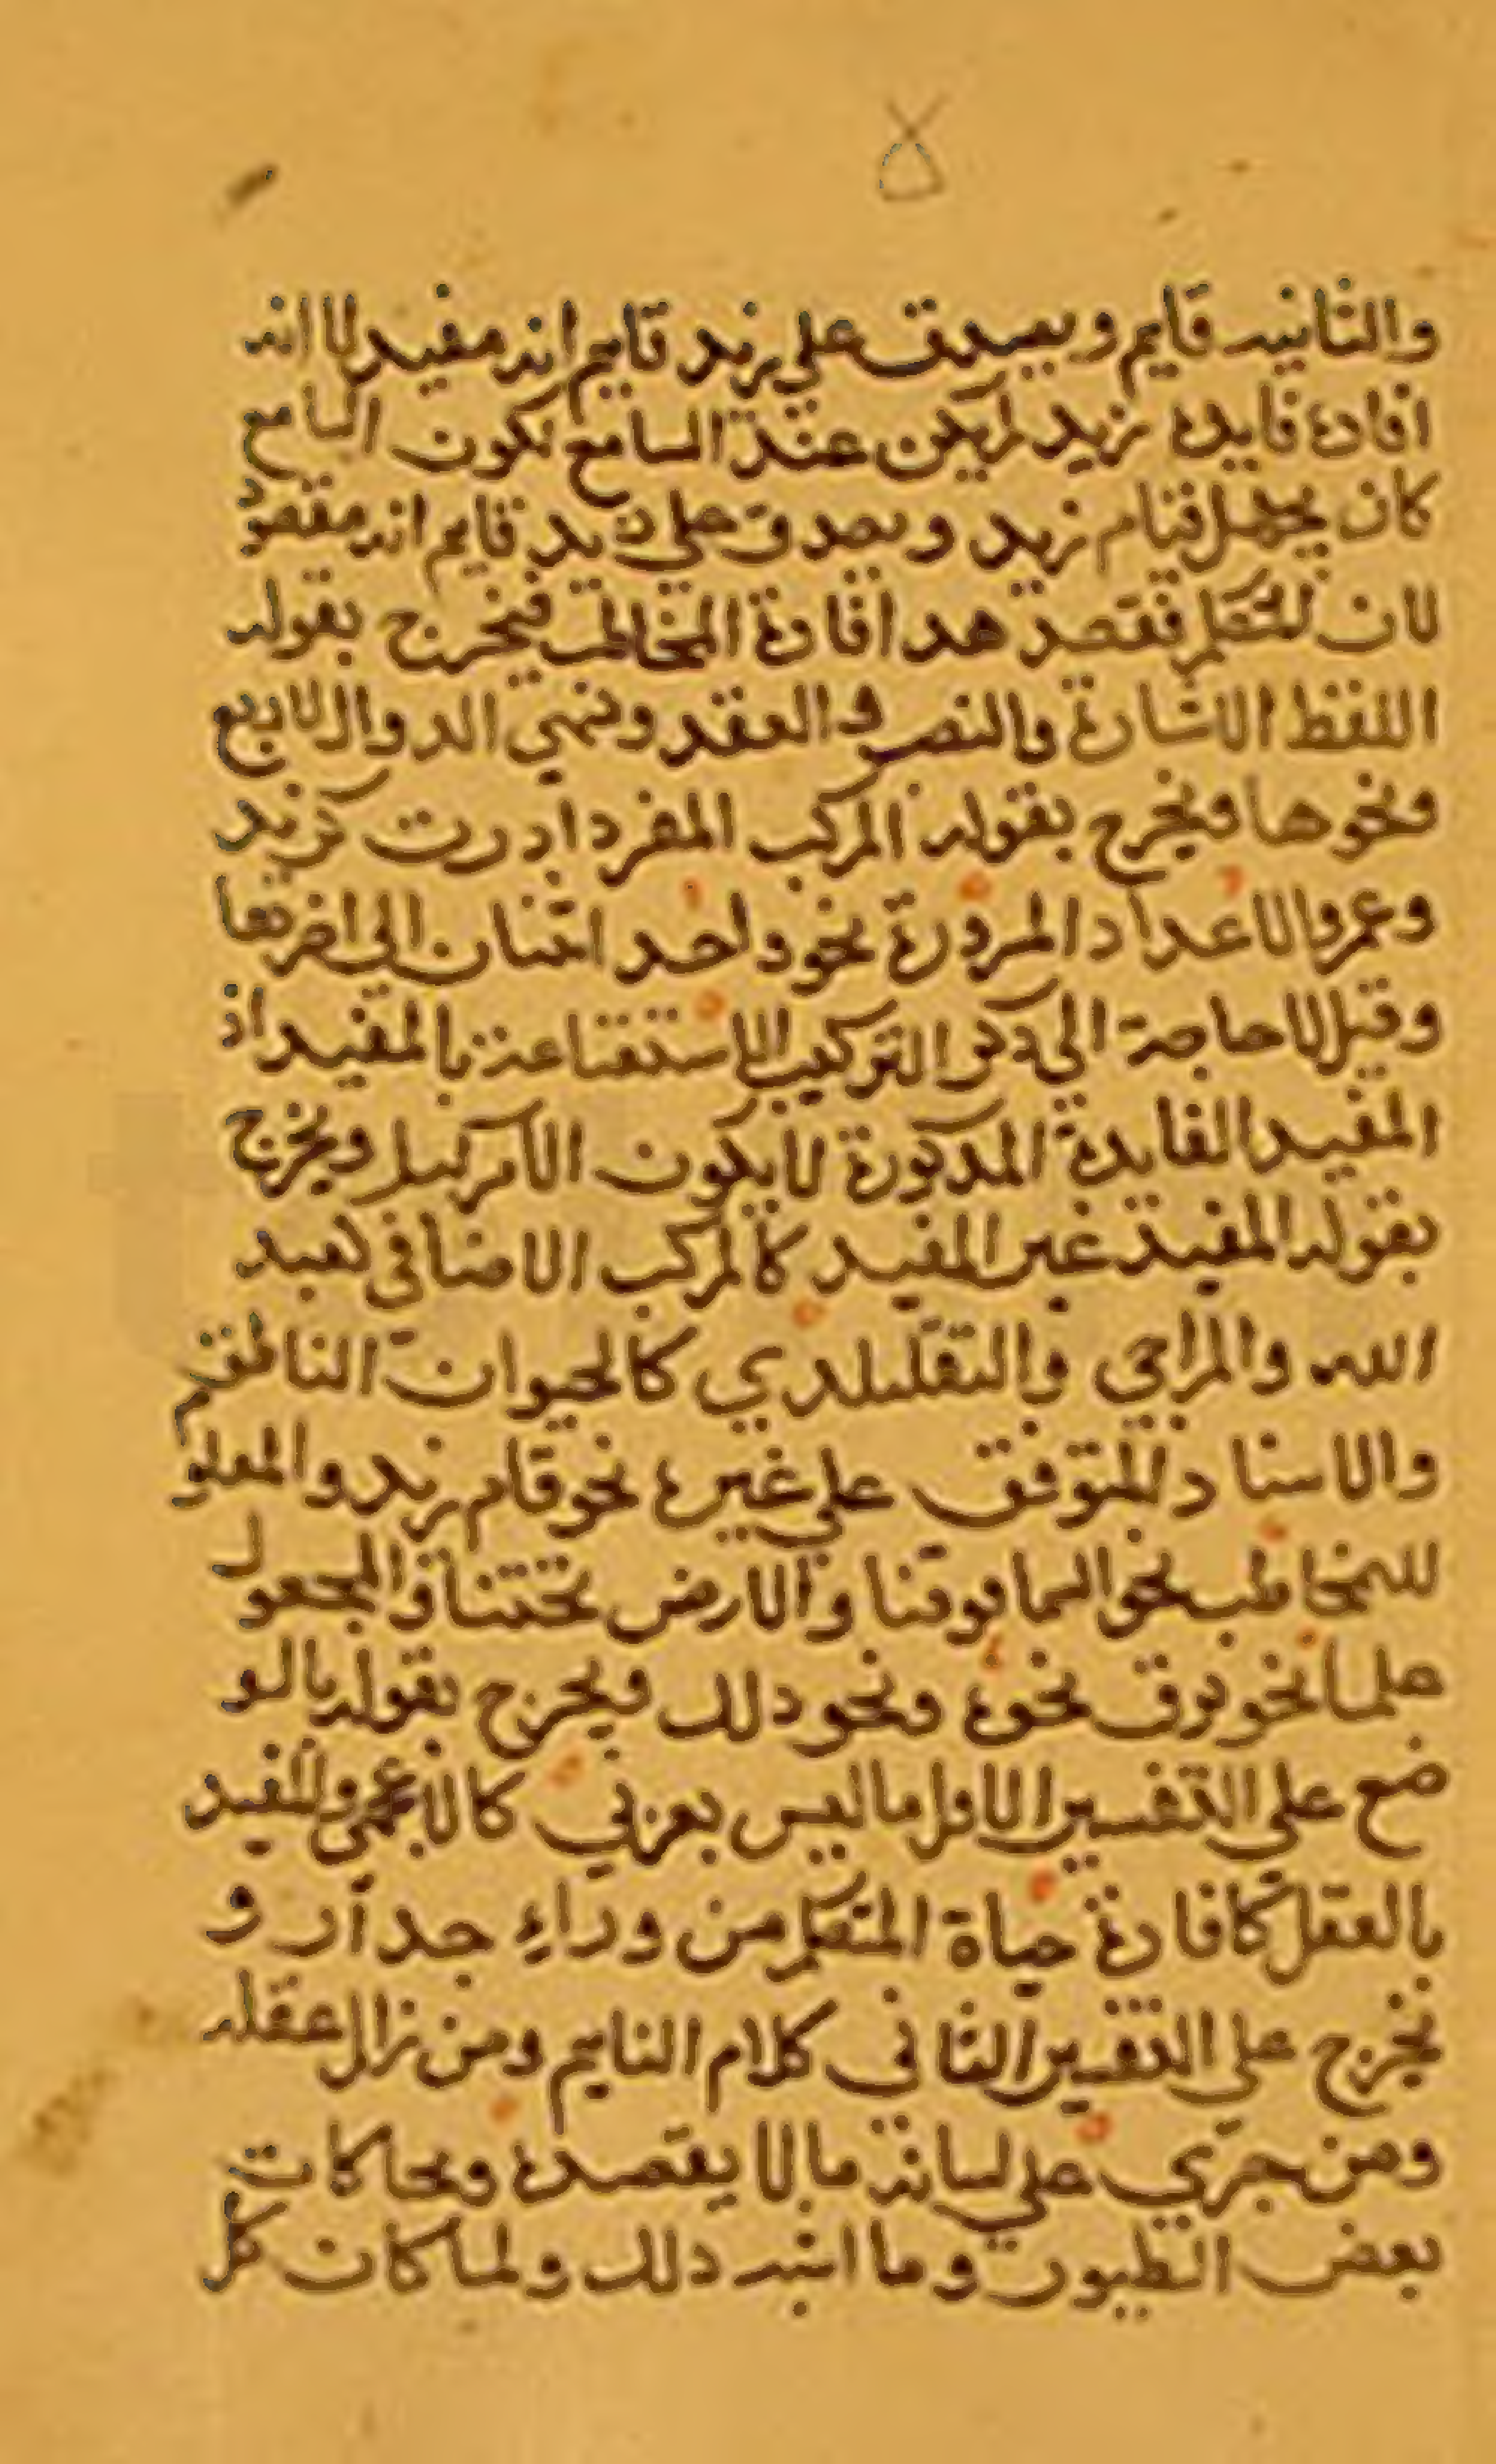 والثانيه قايم ويصدق علي زيد قايم انه مفيد لاانه
افاده فايده زيد لم يكن عند السامع لكون السامع
كان يجهل قيام زيد ويصدق علي زيد قايم انه مقصود
لان المتكلم فقصد هد افادة المخاطب فيخرج بقوله
اللفظ الاشارة والنصب والعقد وتسمي الدوال الاربع
ونحوها ويخرج بقوله المركب المفرد ادرت كزيد
وعمرو الاعداد المردورة نحو واحد اثنان الي اخرها
وقيل لا حاجة الي ذكر التركيب للاستغناعنة بالمفيد اذ
المفيد الفايدة المدكورة لايكون الامركبا ويخرج
بقوله المفيد غير المفيد كالمركب الاضافي كعبد
الله والمزاجي والتقليلدي كالحيوان الناطق
والاسناد المتوقف علي غيره نحو قام زيد والمعلو
للمخاطب نحو السما فوقنا والارض تحتنا والمجعول
علما نحو برق نحوه ونحو دلك ويخرج بقوله بالو
ضع علي التفسير الاول ماليس بعزبي كالاعجمي والمفيد
بالعقل كافادة حياة المتكلم من وراء جدار و
يخرج علي التفسير الثاني كلام النايم ومن زال عقله
ومن جري علي لسانه مالا يقصده ومحاكات
بعض الطيور وما اشبه دلك ولما كان كل